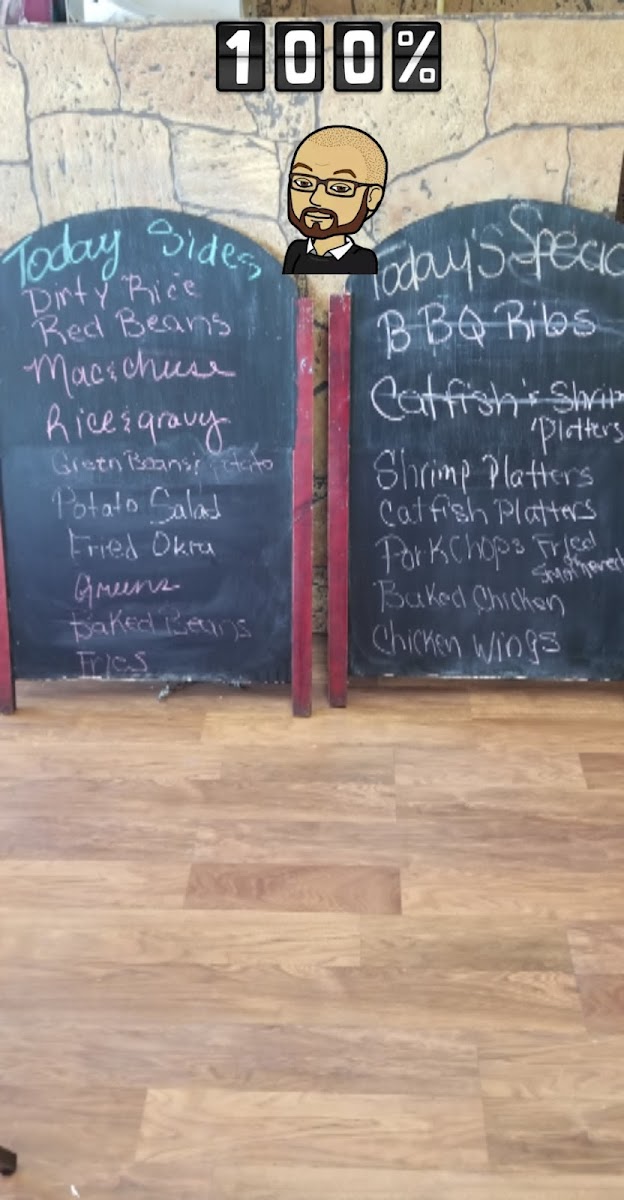 100%
Today Sides
Dirty Rice
Red Beans
Mac & Cheese
Rice & gravy
Green Beans & Potato
Potato Salad
Fried Okra
Greens
Baked Beans
Fries
Today's Specia
BBQ Ribs
Catfish & Shrim
Platters
Shrimp Platters
Catfish Platters
PorkChops Fried
Smothered
Baked Chicken
Chicken Wings